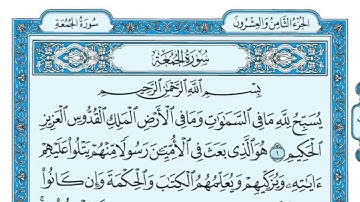 الجُزْءُ الثَّامِنُ وَالْعِشْرُونَ سُورَةُ الجُمُعَةِ
سُورَةُ الجُمُعَةِ
بِسْمِ اللَّهِ الرَّحْمَٰنِ الرَّحِيمِ
يُسَبِّحُ لِلَّهِ مَا فِي السَّمَٰوَٰتِ وَمَا فِي الْأَرْضِ الْمَلِكِ الْقُدُّوسِ الْعَزِيزِ
الْحَكِيمِ ١ هُوَ الَّذِي بَعَثَ فِي الْأُمِّيِّـۧنَ رَسُولًا مِّنْهُمْ يَتْلُوا عَلَيْهِمْ
ءَايَٰتِهِ وَيُزَكِّيهِمْ وَيُعَلِّمُهُمُ الْكِتَٰبَ وَالْحِكْمَةَ وَإِن كَانُوا